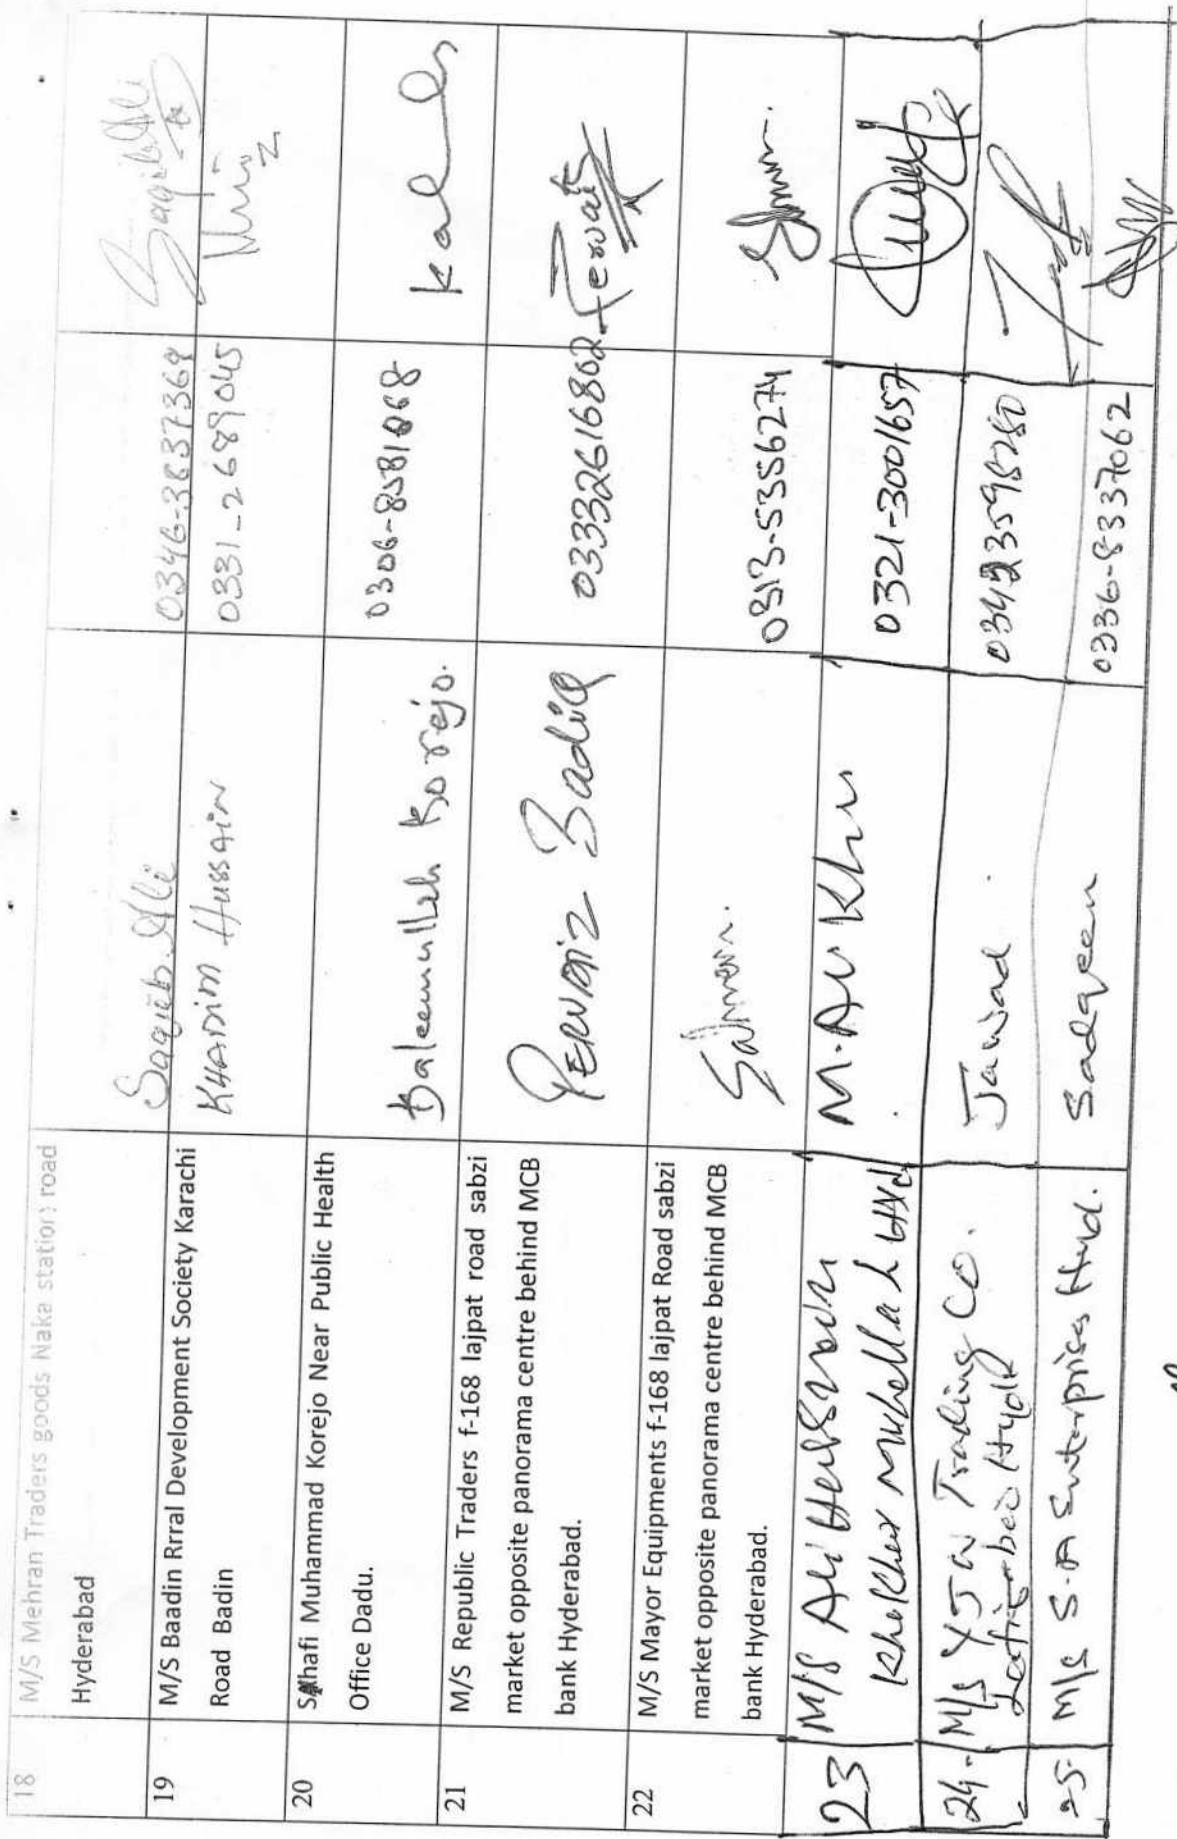 18 M/S Mehran Traders goods Naka station road
Hyderabad
Saqib Ali 0346-3637369 Saqib Ali
19 M/S Baadin Rrral Development Society Karachi
Road Badin
KHADIM HUSSAIN 0331-2689045
20 Sahafi Muhammad Korejo Near Public Health
Office Dadu.
Kaleemullah Korejo. 0306-8581068
21 M/S Republic Traders f-168 lajpat road sabzi
market opposite panorama centre behind MCB
bank Hyderabad.
PERVAIZ 03332616802
22 M/S Mayor Equipments f-168 lajpat Road sabzi
market opposite panorama centre behind MCB
bank Hyderabad.
Salman. 0313-5356274
23 M/S Ali
Muhallah Hyd
M. Ali Khan 0321-3001657
24- M/S Trading Co.
Hyd
Jawad. 03423598280
25- M/S S.A Enterprises Hyd.
Sadqeen 0336-8337062